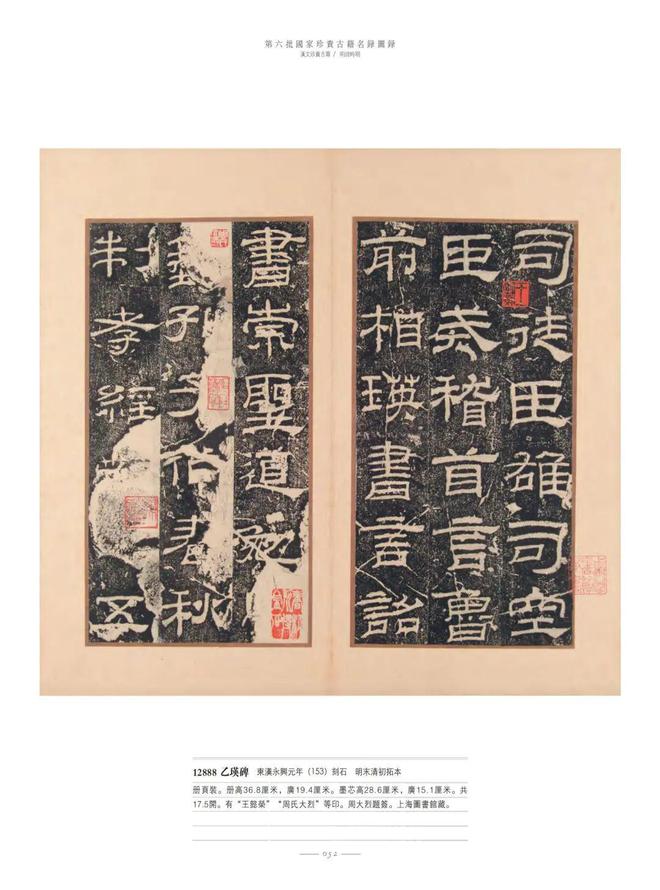 第六批國家珍貴古籍名録圖録
漢文珍貴古籍 / 明清時期
司徒臣雄司空
臣戒稽首言魯
前相瑛書言詔
書崇聖道勉
孔子作春秋
制孝經 五
12888 乙瑛碑 東漢永興元年（153）刻石 明末清初拓本
册頁裝。册高36.8厘米，廣19.4厘米。墨芯高28.6厘米，廣15.1厘米。共
17.5開。有“王懿榮”“周氏大烈”等印。周大烈題簽。上海圖書館藏。
052